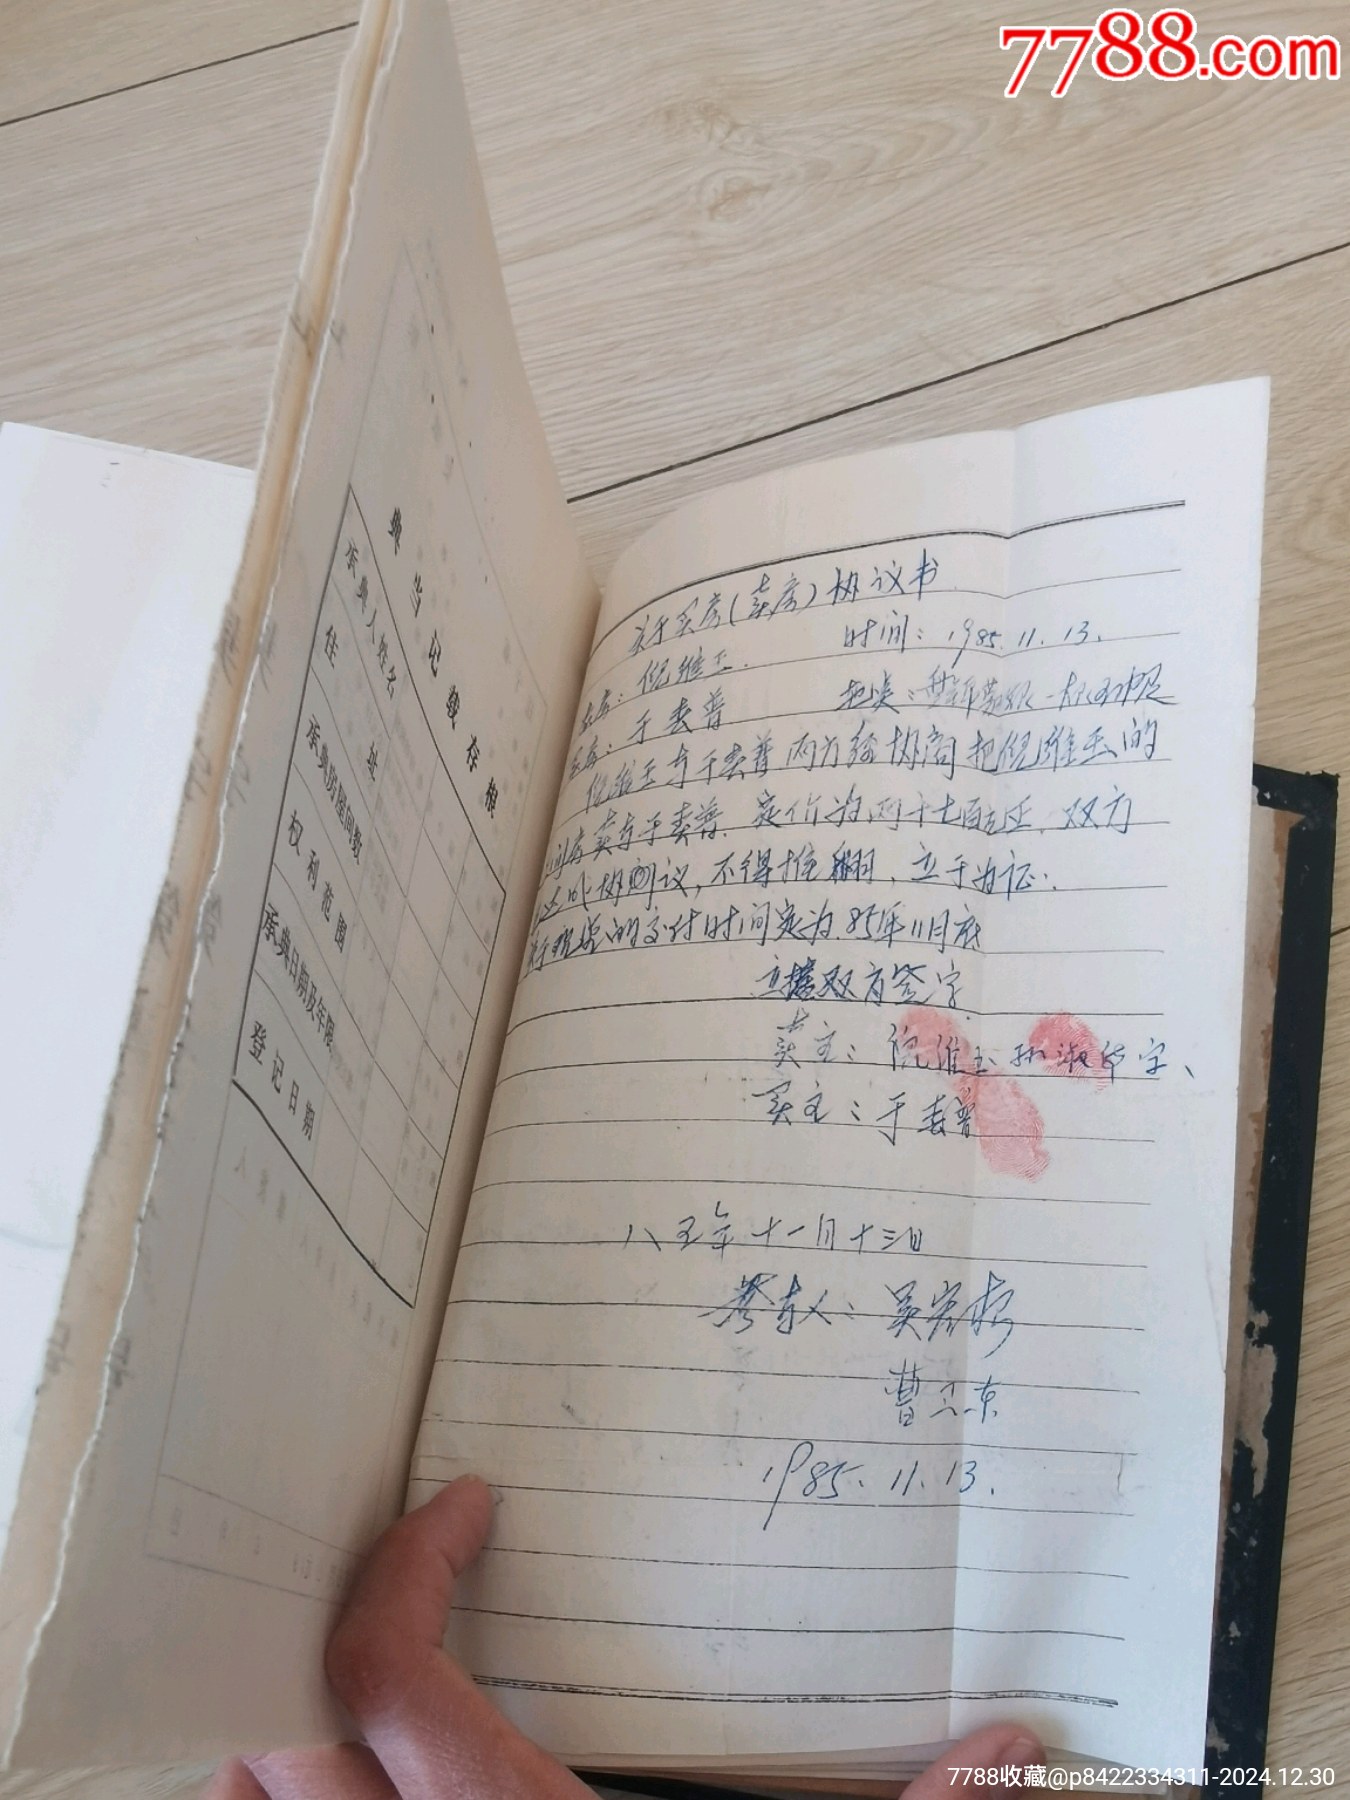 7788.com
典当记录存根
承典人姓名
住址
承典房屋间数
权利范围
承典日期及年限
登记日期
关于买房(卖房)协议书
时间:1985.11.13.
倪维玉.
于春普
倪维玉与于春普两方经协商把倪维玉的
间房卖与于春普.定价为两千七百元正.双方
达此协议,不得推翻,立于为证.
的交付时间定为85年11月底
立据双方签字
卖主:倪维玉孙淑华字、
买主:于春普
八五年十一月十三日
参与人:吴
曹
1985.11.13.
7788收藏@p8422334311-2024.12.30